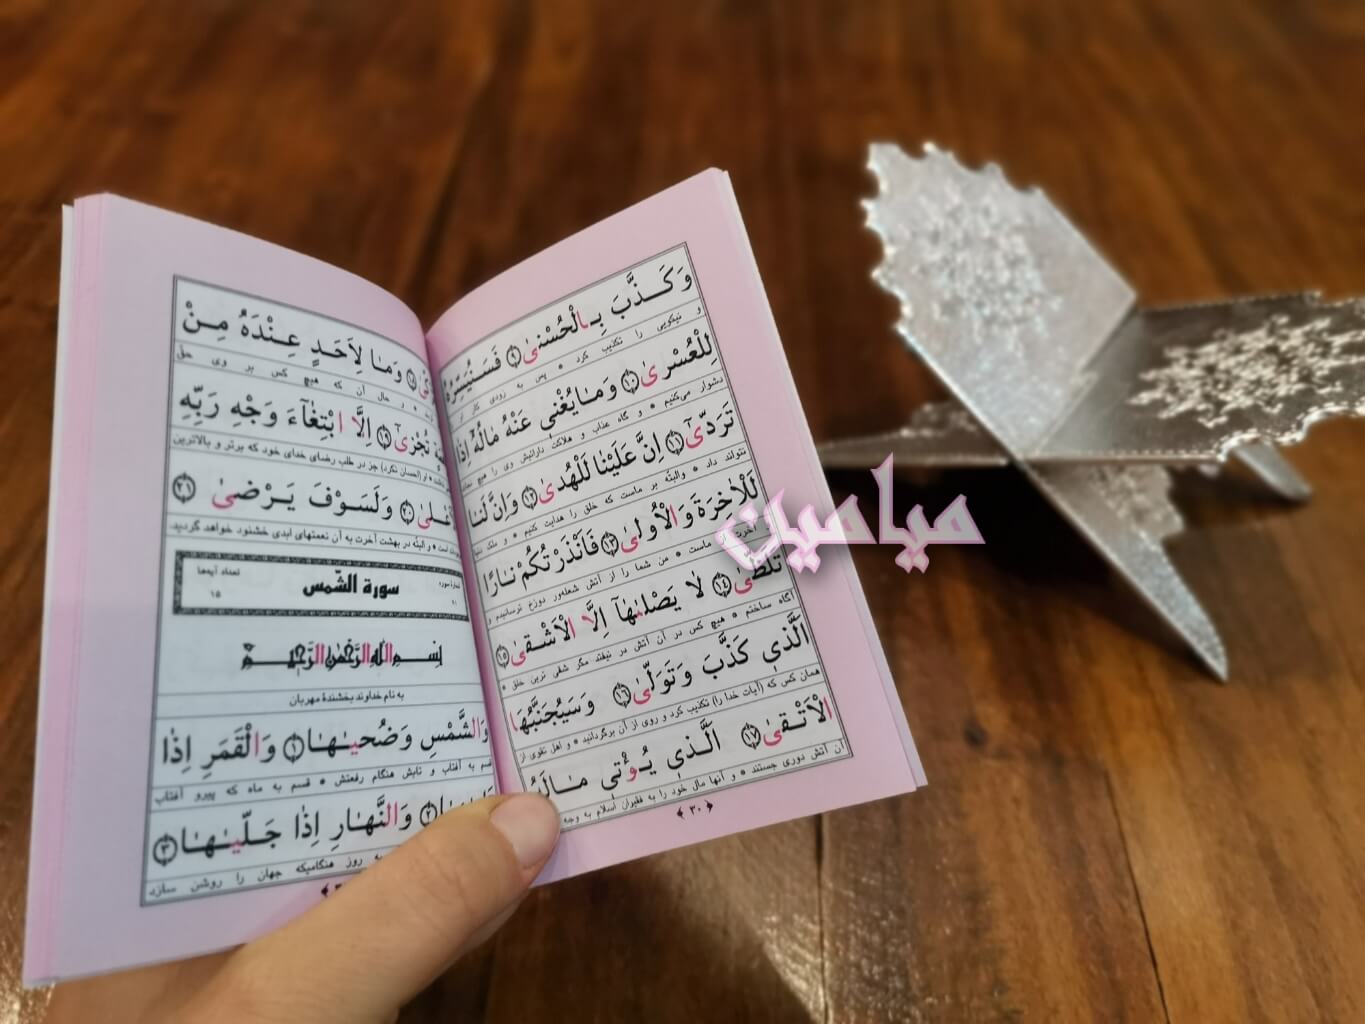 وَكَذَّبَ بِالْحُسْنىٰ ﴿٩﴾ فَسَنُيَسِّرُهُ
و نیکویی را تکذیب کرد * پس به زودی کار او
لِلْعُسْرىٰ ﴿١٠﴾ وَمٰايُغْنٖي عَنْهُ مٰالُهُٓ اِذٰا
دشوار می‌کنیم * و گاه عذاب و هلاکت دارائیش وی را هیچ نجات
تَرَدّىٰٓ ﴿١١﴾ اِنَّ عَلَيْنٰا لَلْهُدىٰ ﴿١٢﴾ وَاِنَّ لَنٰا
نتواند داد * والبتّه بر ماست که خلق را هدایت کنیم * و ملک دنیا
لَلْاٰخِرَةَ وَالْاُولىٰ ﴿١٣﴾ فَاَنْذَرْتُكُمْ نٰارًا
و آخرت از ماست * من شما را از آتش شعله‌ور دوزخ ترسانیدم و
تَلَظّىٰ ﴿١٤﴾ لٰا يَصْلٰىهٰٓا اِلَّا الْاَشْقىٰ ﴿١٥﴾
آگاه ساختم * هیچ کس در آن آتش در نیفتد مگر شقی ترین خلق *
اَلَّذٖي كَذَّبَ وَتَوَلّىٰ ﴿١٦﴾ وَسَيُجَنَّبُهَا
همان کس که (آیات خدا را) تکذیب کرد و روی از آن برگردانید * و اهل تقوی از
الْاَتْقىٰ ﴿١٧﴾ اَلَّذٖي يُؤْتٖي مٰالَهُ
آن آتش دوری جستند * و آنها مال خود را به فقیران اسلام به وجه
﴿٣٠﴾
﴿١٨﴾ وَمٰا لِاَحَدٍ عِنْدَهُ مِنْ
* و حال آن که هیچ کس بر وی حقّ
تُجْزىٰٓ ﴿١٩﴾ اِلَّا ابْتِغٰٓاءَ وَجْهِ رَبِّهِ
او (احسان نکرد) جز در طلب رضای خدای خود که برتر و بالاترین
﴿٢٠﴾ وَلَسَوْفَ يَرْضىٰ ﴿٢١﴾
است * و البتّه در بهشت آخرت به آن نعمتهای ابدی خشنود خواهد گردید.
شماره سوره ٩١ سورة الشّمس تعداد آیه‌ها ١٥
بِسْمِ اللهِ الرَّحْمٰنِ الرَّحٖيمِ
به نام خداوند بخشندهٔ مهربان
وَالشَّمْسِ وَضُحٰيهٰا ﴿١﴾ وَالْقَمَرِ اِذٰا
قسم به آفتاب و تابش هنگام رفعتش * قسم به ماه که پیرو آفتاب
﴿٢﴾ وَالنَّهٰارِ اِذٰا جَلّٰيهٰا ﴿٣﴾
به روز هنگامیکه جهان را روشن سازد
میامین